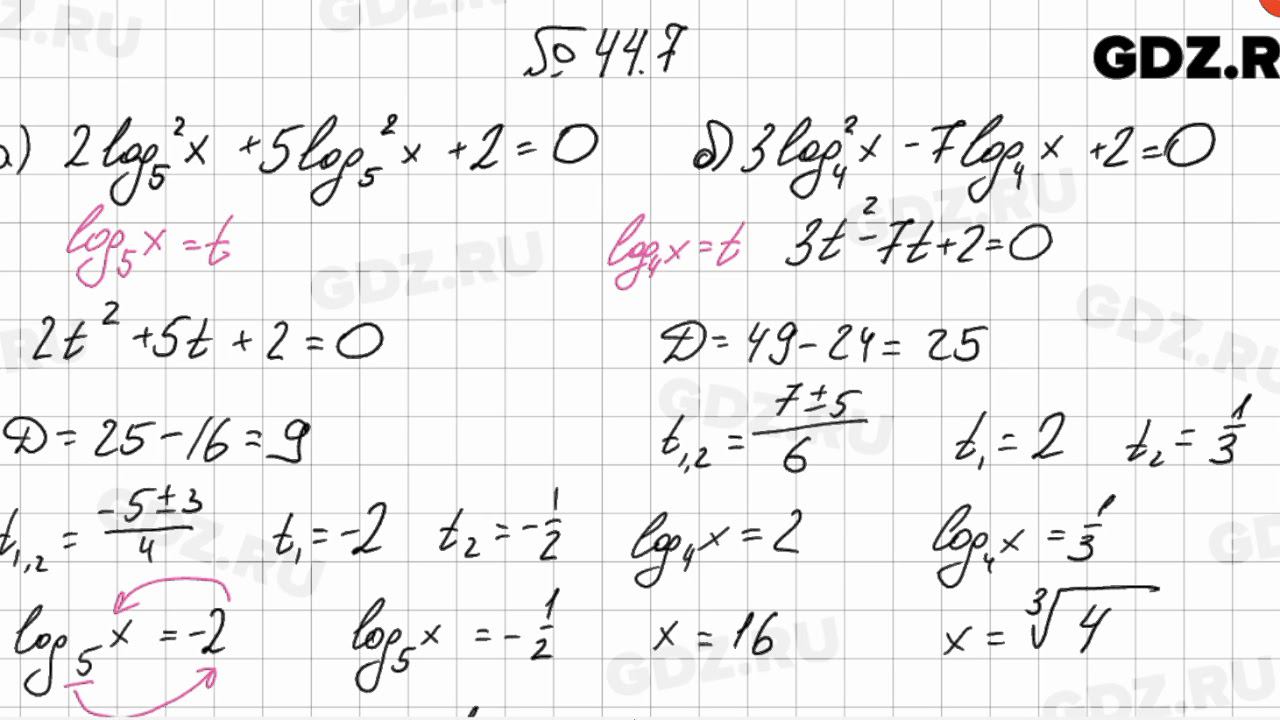 № 44.7
GDZ.R
а) 2log₅²x + 5log₅²x + 2 = 0
log₅x = t
2t² + 5t + 2 = 0
D = 25 - 16 = 9
t₁,₂ = (-5 ± 3)/4 t₁ = -2 t₂ = -1/2
log₅x = -2 log₅x = -1/2
б) 3log₄²x - 7log₄x + 2 = 0
log₄x = t 3t² - 7t + 2 = 0
D = 49 - 24 = 25
t₁,₂ = (7 ± 5)/6 t₁ = 2 t₂ = 1/3
log₄x = 2 log₄x = 1/3
x = 16 x = ∛4